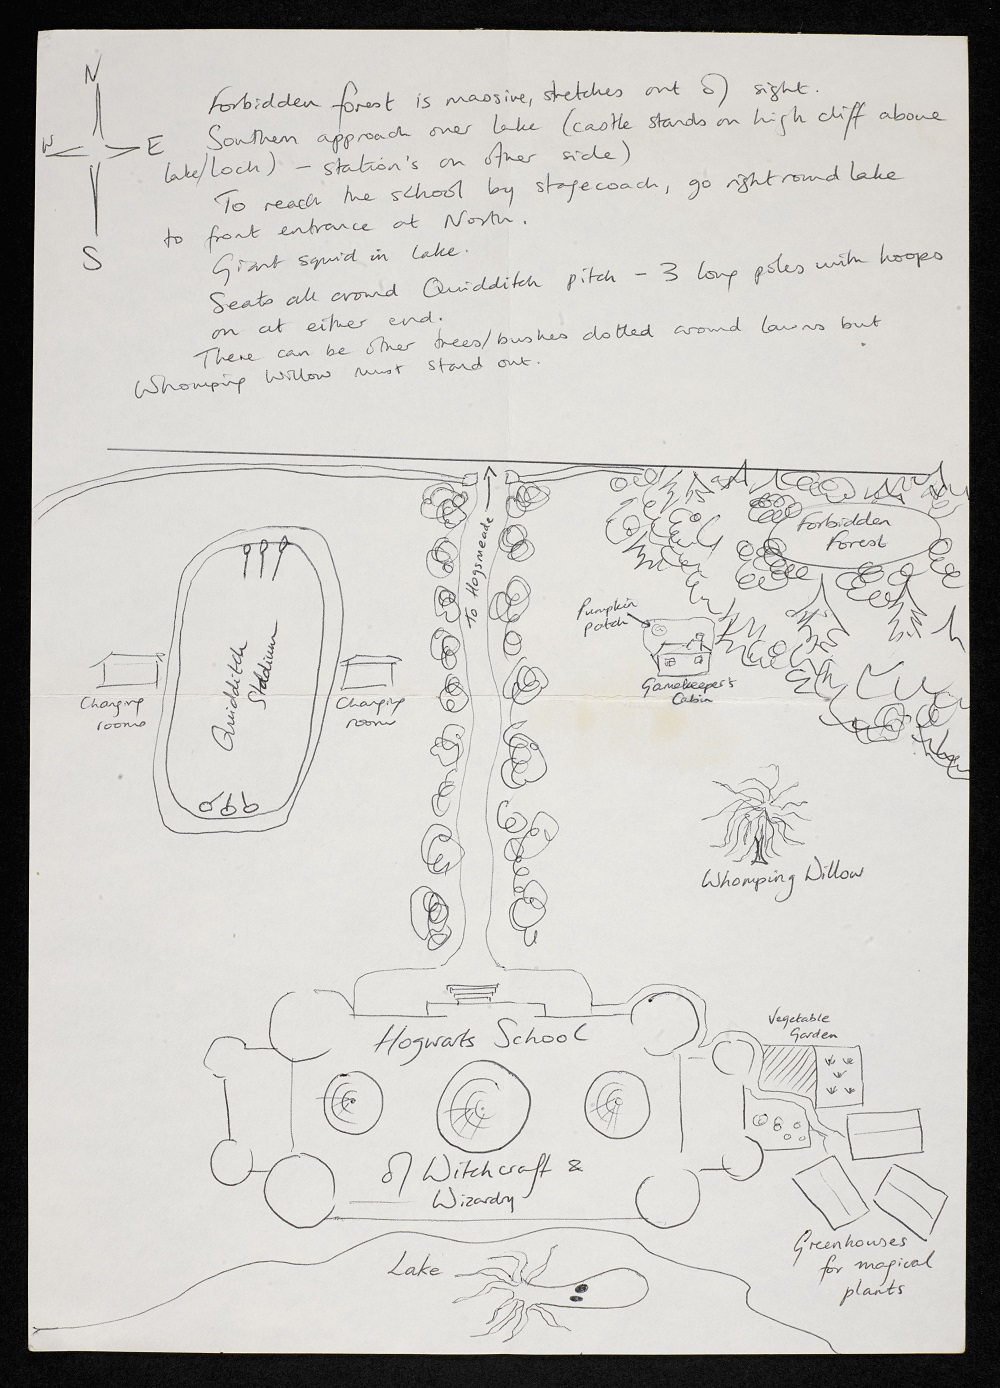 N
W E
S
Forbidden forest is massive, stretches out of sight.
Southern approach over lake (castle stands on high cliff above
lake/loch) – station's on other side)
To reach the school by stagecoach, go right round lake
to front entrance at North.
Giant squid in lake.
Seats all around Quidditch pitch – 3 long poles with hoops
on at either end.
There can be other trees/bushes dotted around lawns but
Whomping Willow must stand out.
To Hogsmeade
Forbidden
Forest
Pumpkin
patch
Gamekeeper's
Cabin
Quidditch
Stadium
Changing
rooms
Changing
rooms
Whomping Willow
Hogwarts School
of Witchcraft &
Wizardry
Vegetable
Garden
Greenhouses
for magical
plants
Lake